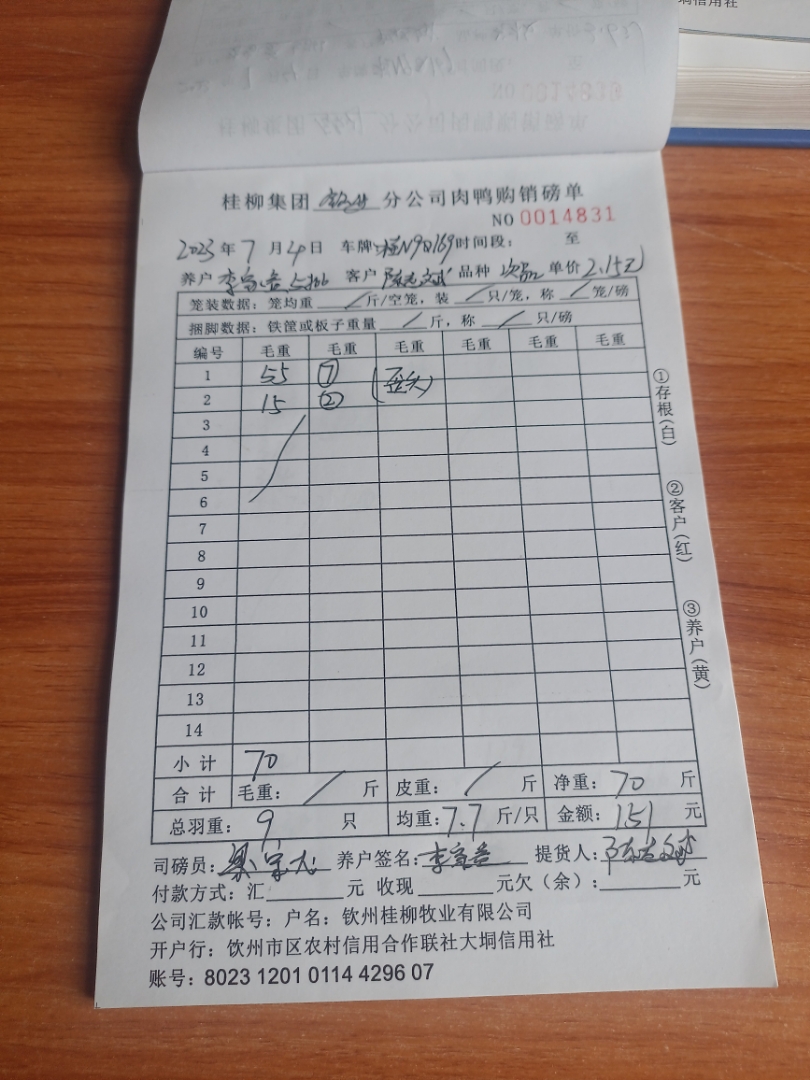 垌信用社
桂柳集团 钦州 分公司肉鸭购销磅单
NO 0014831
2023年7月4日 车牌:桂N9D169时间段: 至
养户 客户 品种 次品 单价2.15元
笼装数据:笼均重 / 斤/空笼,装 / 只/笼,称 / 笼/磅
捆脚数据:铁筐或板子重量 / 斤,称 / 只/磅
编号 毛重 毛重 毛重 毛重 毛重 毛重
1 55 ⑦ (歪头)
2 15 ②
3
4
5
6
7
8
9
10
11
12
13
14
小计 70
合计 毛重: / 斤 皮重: / 斤 净重:70 斤
总羽重: 9 只 均重:7.7 斤/只 金额:151 元
司磅员: 养户签名: 提货人:
付款方式:汇 元 收现 元欠(余): 元
公司汇款帐号:户名:钦州桂柳牧业有限公司
开户行:钦州市区农村信用合作联社大垌信用社
账号:8023 1201 0114 4296 07
①存根(白)
②客户(红)
③养户(黄)